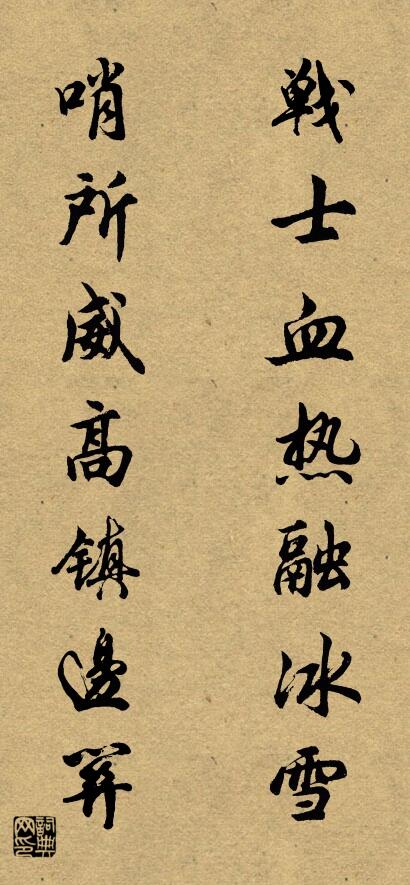 戦士血热融冰雪
哨所威高镇邊関
詞典网印